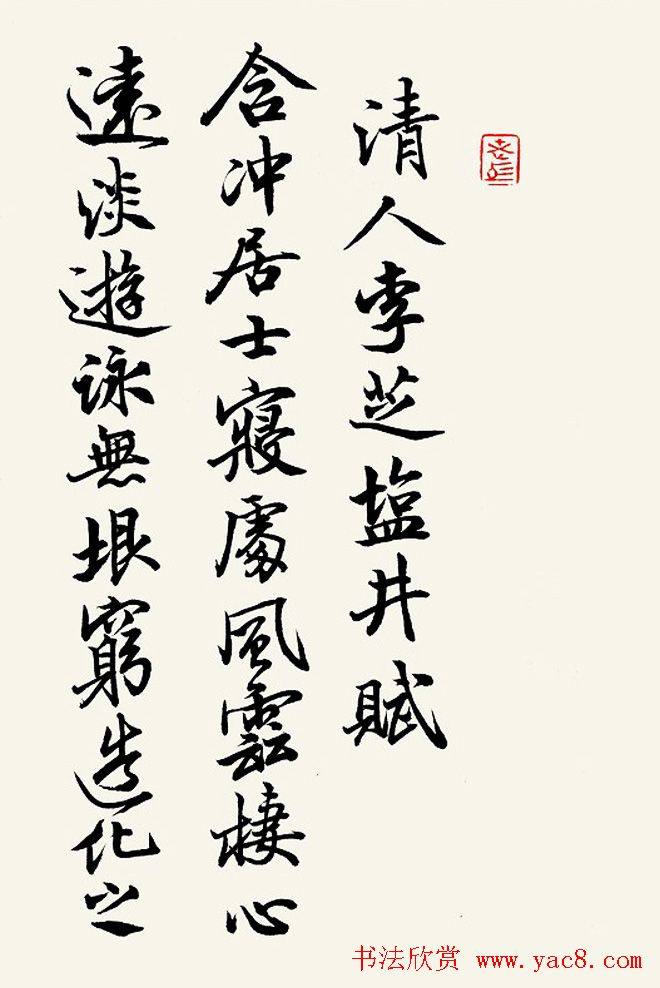 清人李芝塩井賦
含冲居士寢處風雲棲心
遠淡遊詠無垠窮造化之
书法欣赏 www.yac8.com